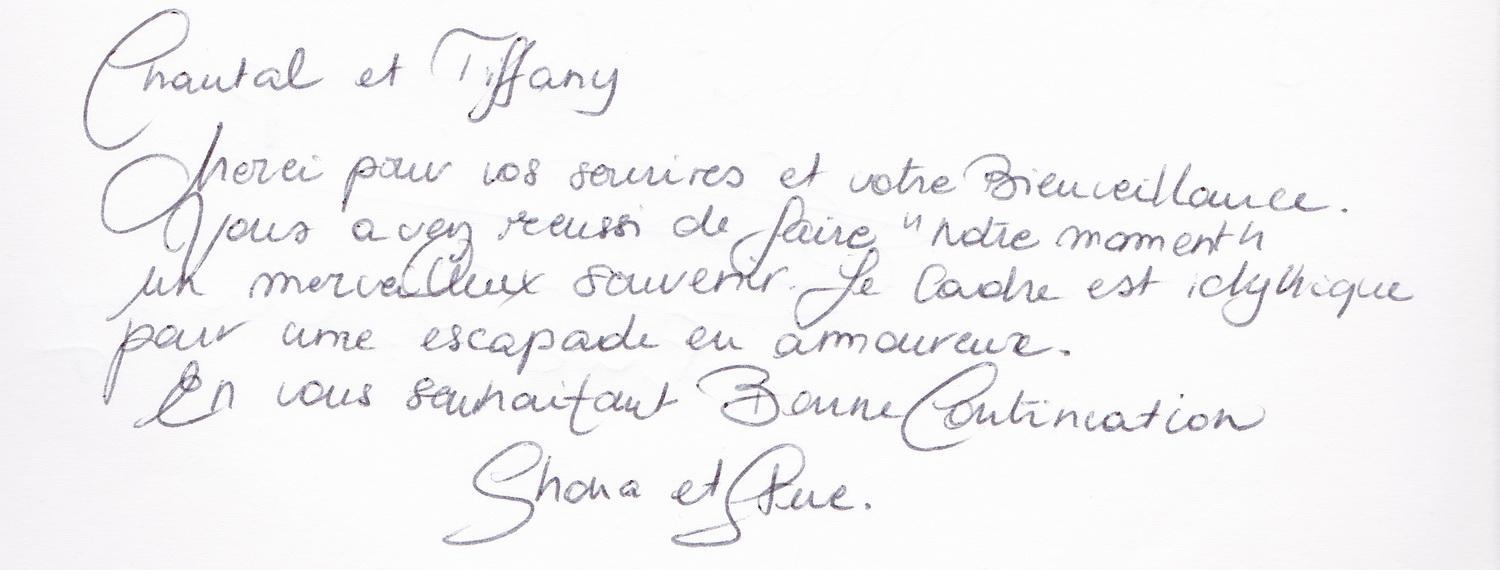 Chantal et Tiffany
Merci pour vos sourires et votre Bienveillance.
Vous avez reussi de faire "notre moment"
un merveilleux souvenir. Le Cadre est idyllique
pour une escapade en amoureux.
En vous souhaitant Bonne Continuation
Shona et